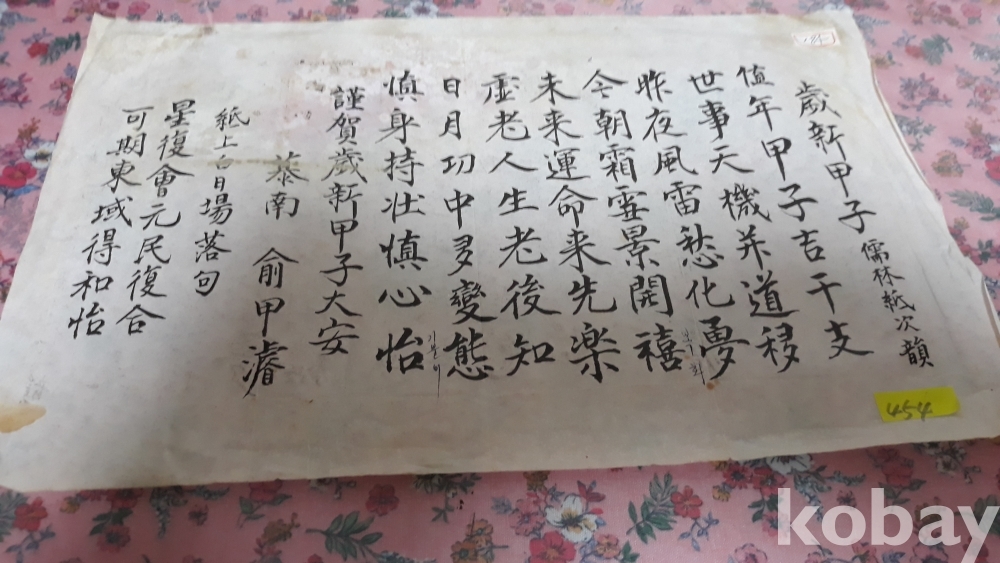 歲新甲子 儒林紙次韻
值年甲子吉干支
世事天機并道移
昨夜風雷愁化夢
今朝霜雪景開禧
未来運命来先楽
虛老人生老後知
日月功中多變態
愼身持壯愼心怡
謹賀歲新甲子大安
南 俞甲濬
紙上白日場落句
星復會元民復合
可期東域得和怡
454
kobay